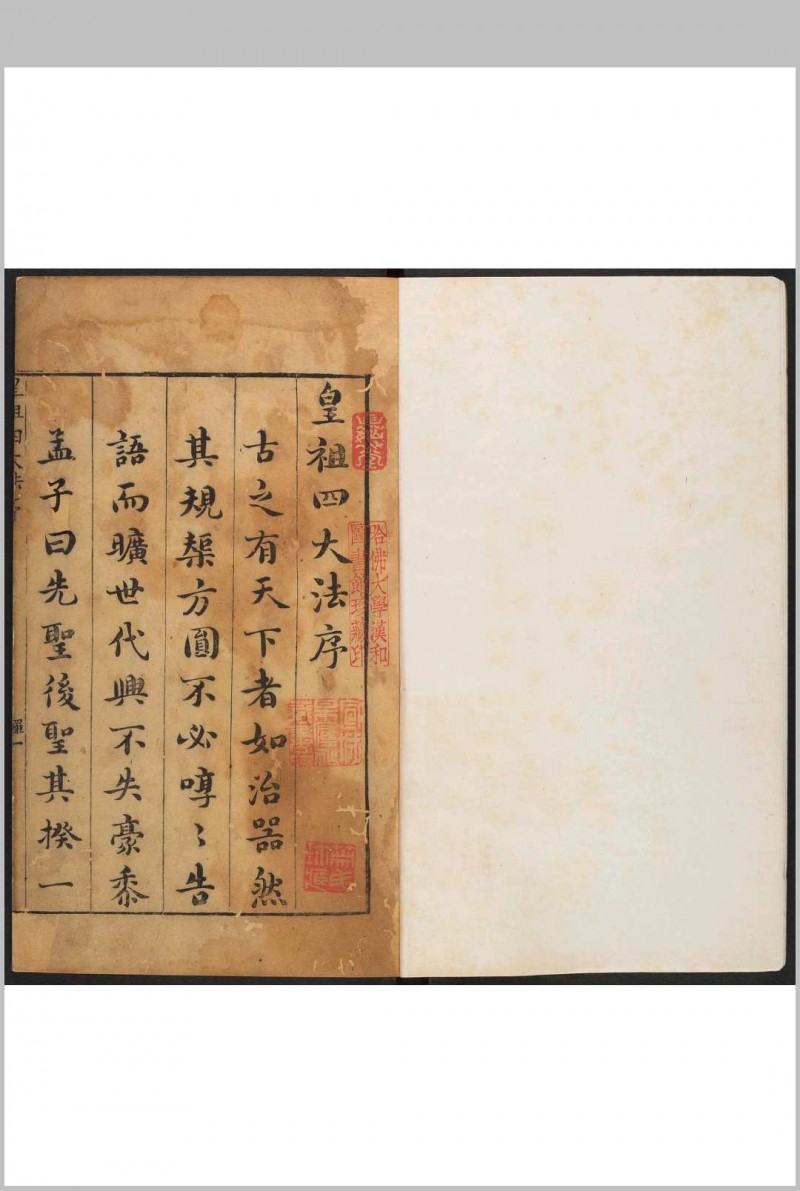 皇祖四大法序
古之有天下者如治器然
其規榘方圓不必嘑〻告
語而曠世代興不失豪黍
孟子曰先聖後聖其揆一
哈佛大學漢和
圖書館珍藏印
皇祖四大法序